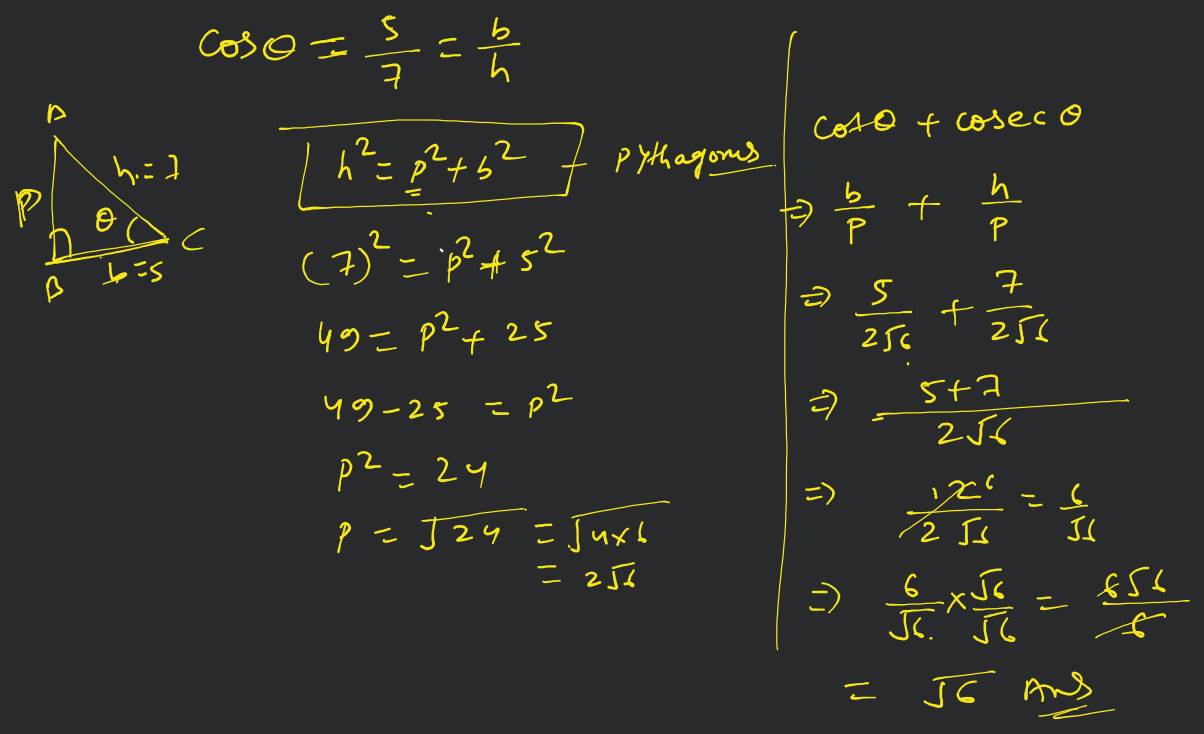 cosθ = 5/7 = b/h
A
h = 7
P
θ
C
B
b=5
h² = p² + b² Pythagorus
(7)² = p² + 5²
49 = p² + 25
49 - 25 = p²
p² = 24
p = √24 = √4×6
= 2√6
cotθ + cosecθ
⇒ b/p + h/p
⇒ 5/2√6 + 7/2√6
⇒ 5+7/2√6
⇒ 12 6/2√6 = 6/√6
⇒ 6/√6 × √6/√6 = 6√6/6
= √6 Ans